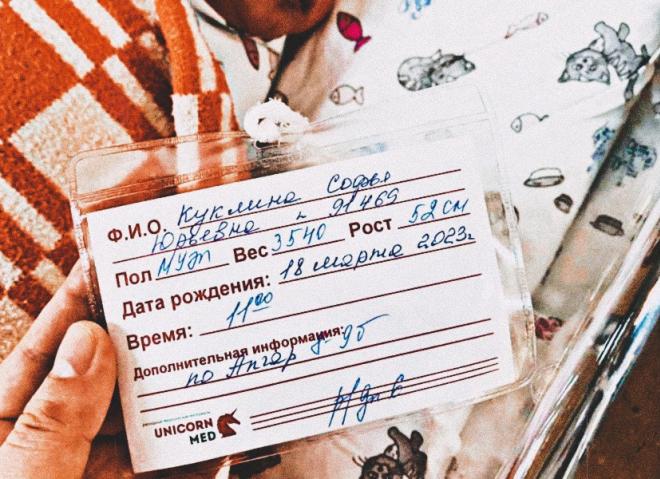 Ф.И.О. Куклина Софья
Юрьевна н 91469
Пол МУЖ Вес 3540 Рост 52 см
Дата рождения: 18 марта 2023г
Время: 11⁰⁰
Дополнительная информация:
по Апгар 7-9б
UNICORN
MED